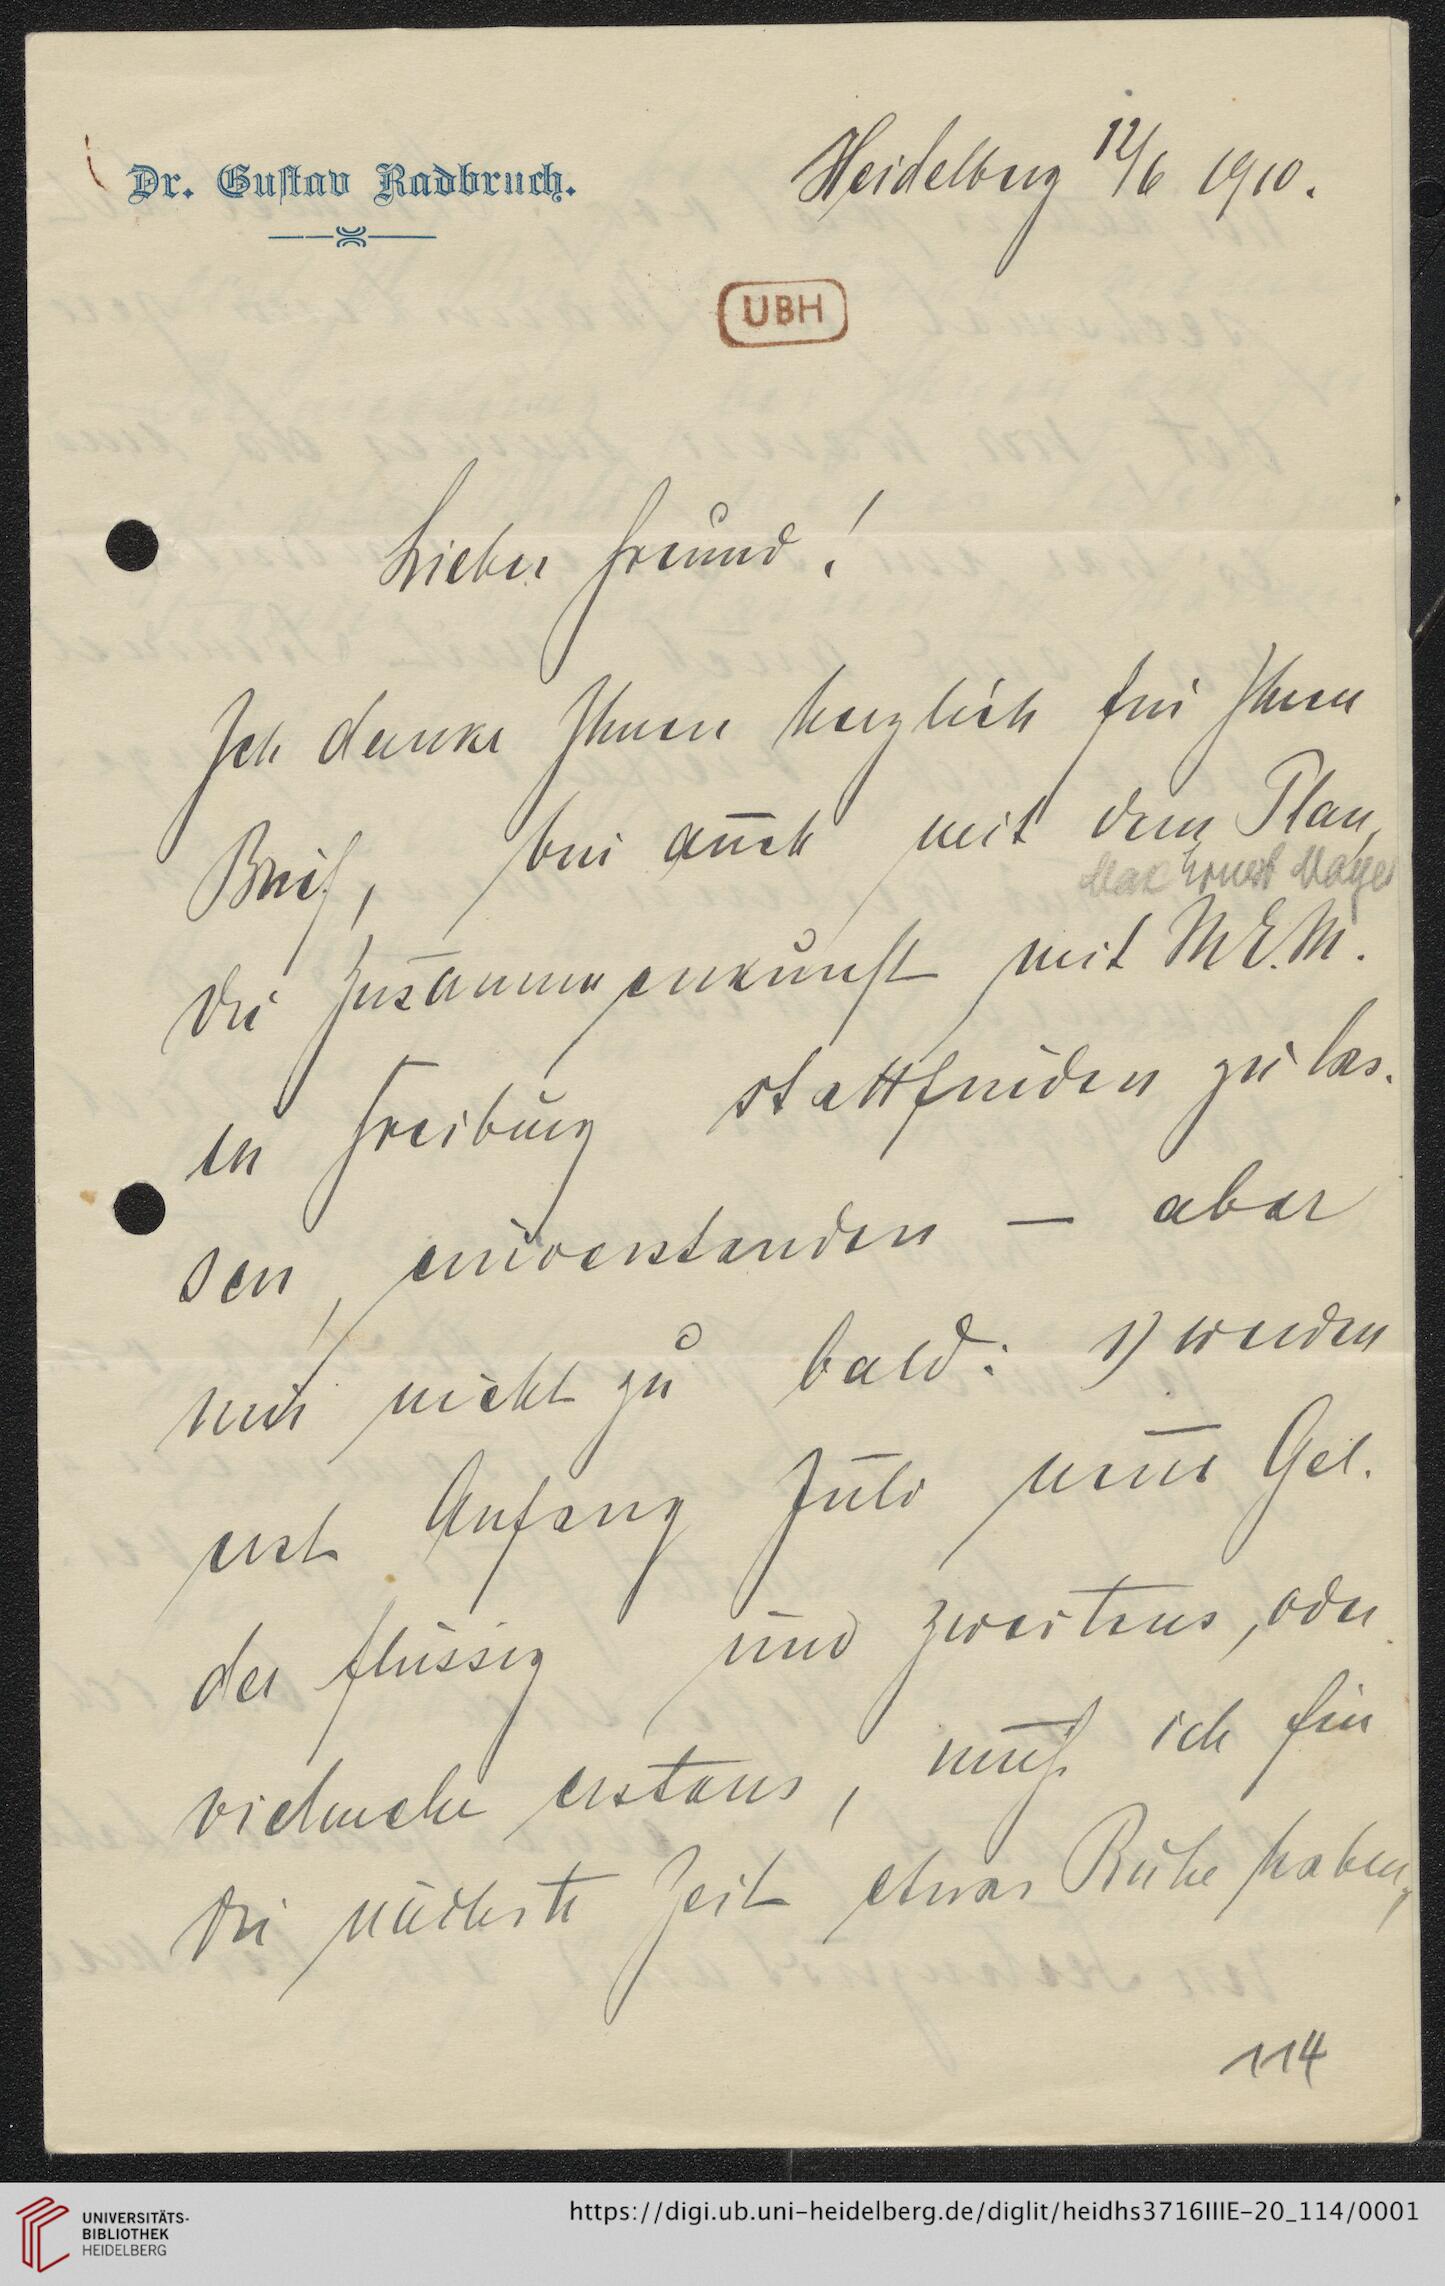 Dr. Gustav Radbruch.
Heidelberg 12/6 1910.
UBH
Lieber Freund!
Ich danke Ihnen herzlich für Ihren
Brief, bin auch mit dem Plan,
Max Ernst Mayer
die Zusammenkunft mit M.E.M.
in Freiburg stattfinden zu las-
sen, einverstanden — aber
nur nicht zu bald: 1) werden
erst Anfang Juli neue Gel-
der flüssig und zweitens, oder
vielmehr erstens, muß ich für
die nächste Zeit etwas Ruhe haben,
114
UNIVERSITÄTS-
BIBLIOTHEK
HEIDELBERG
https://digi.ub.uni-heidelberg.de/diglit/heidhs3716IIIE-20_114/0001